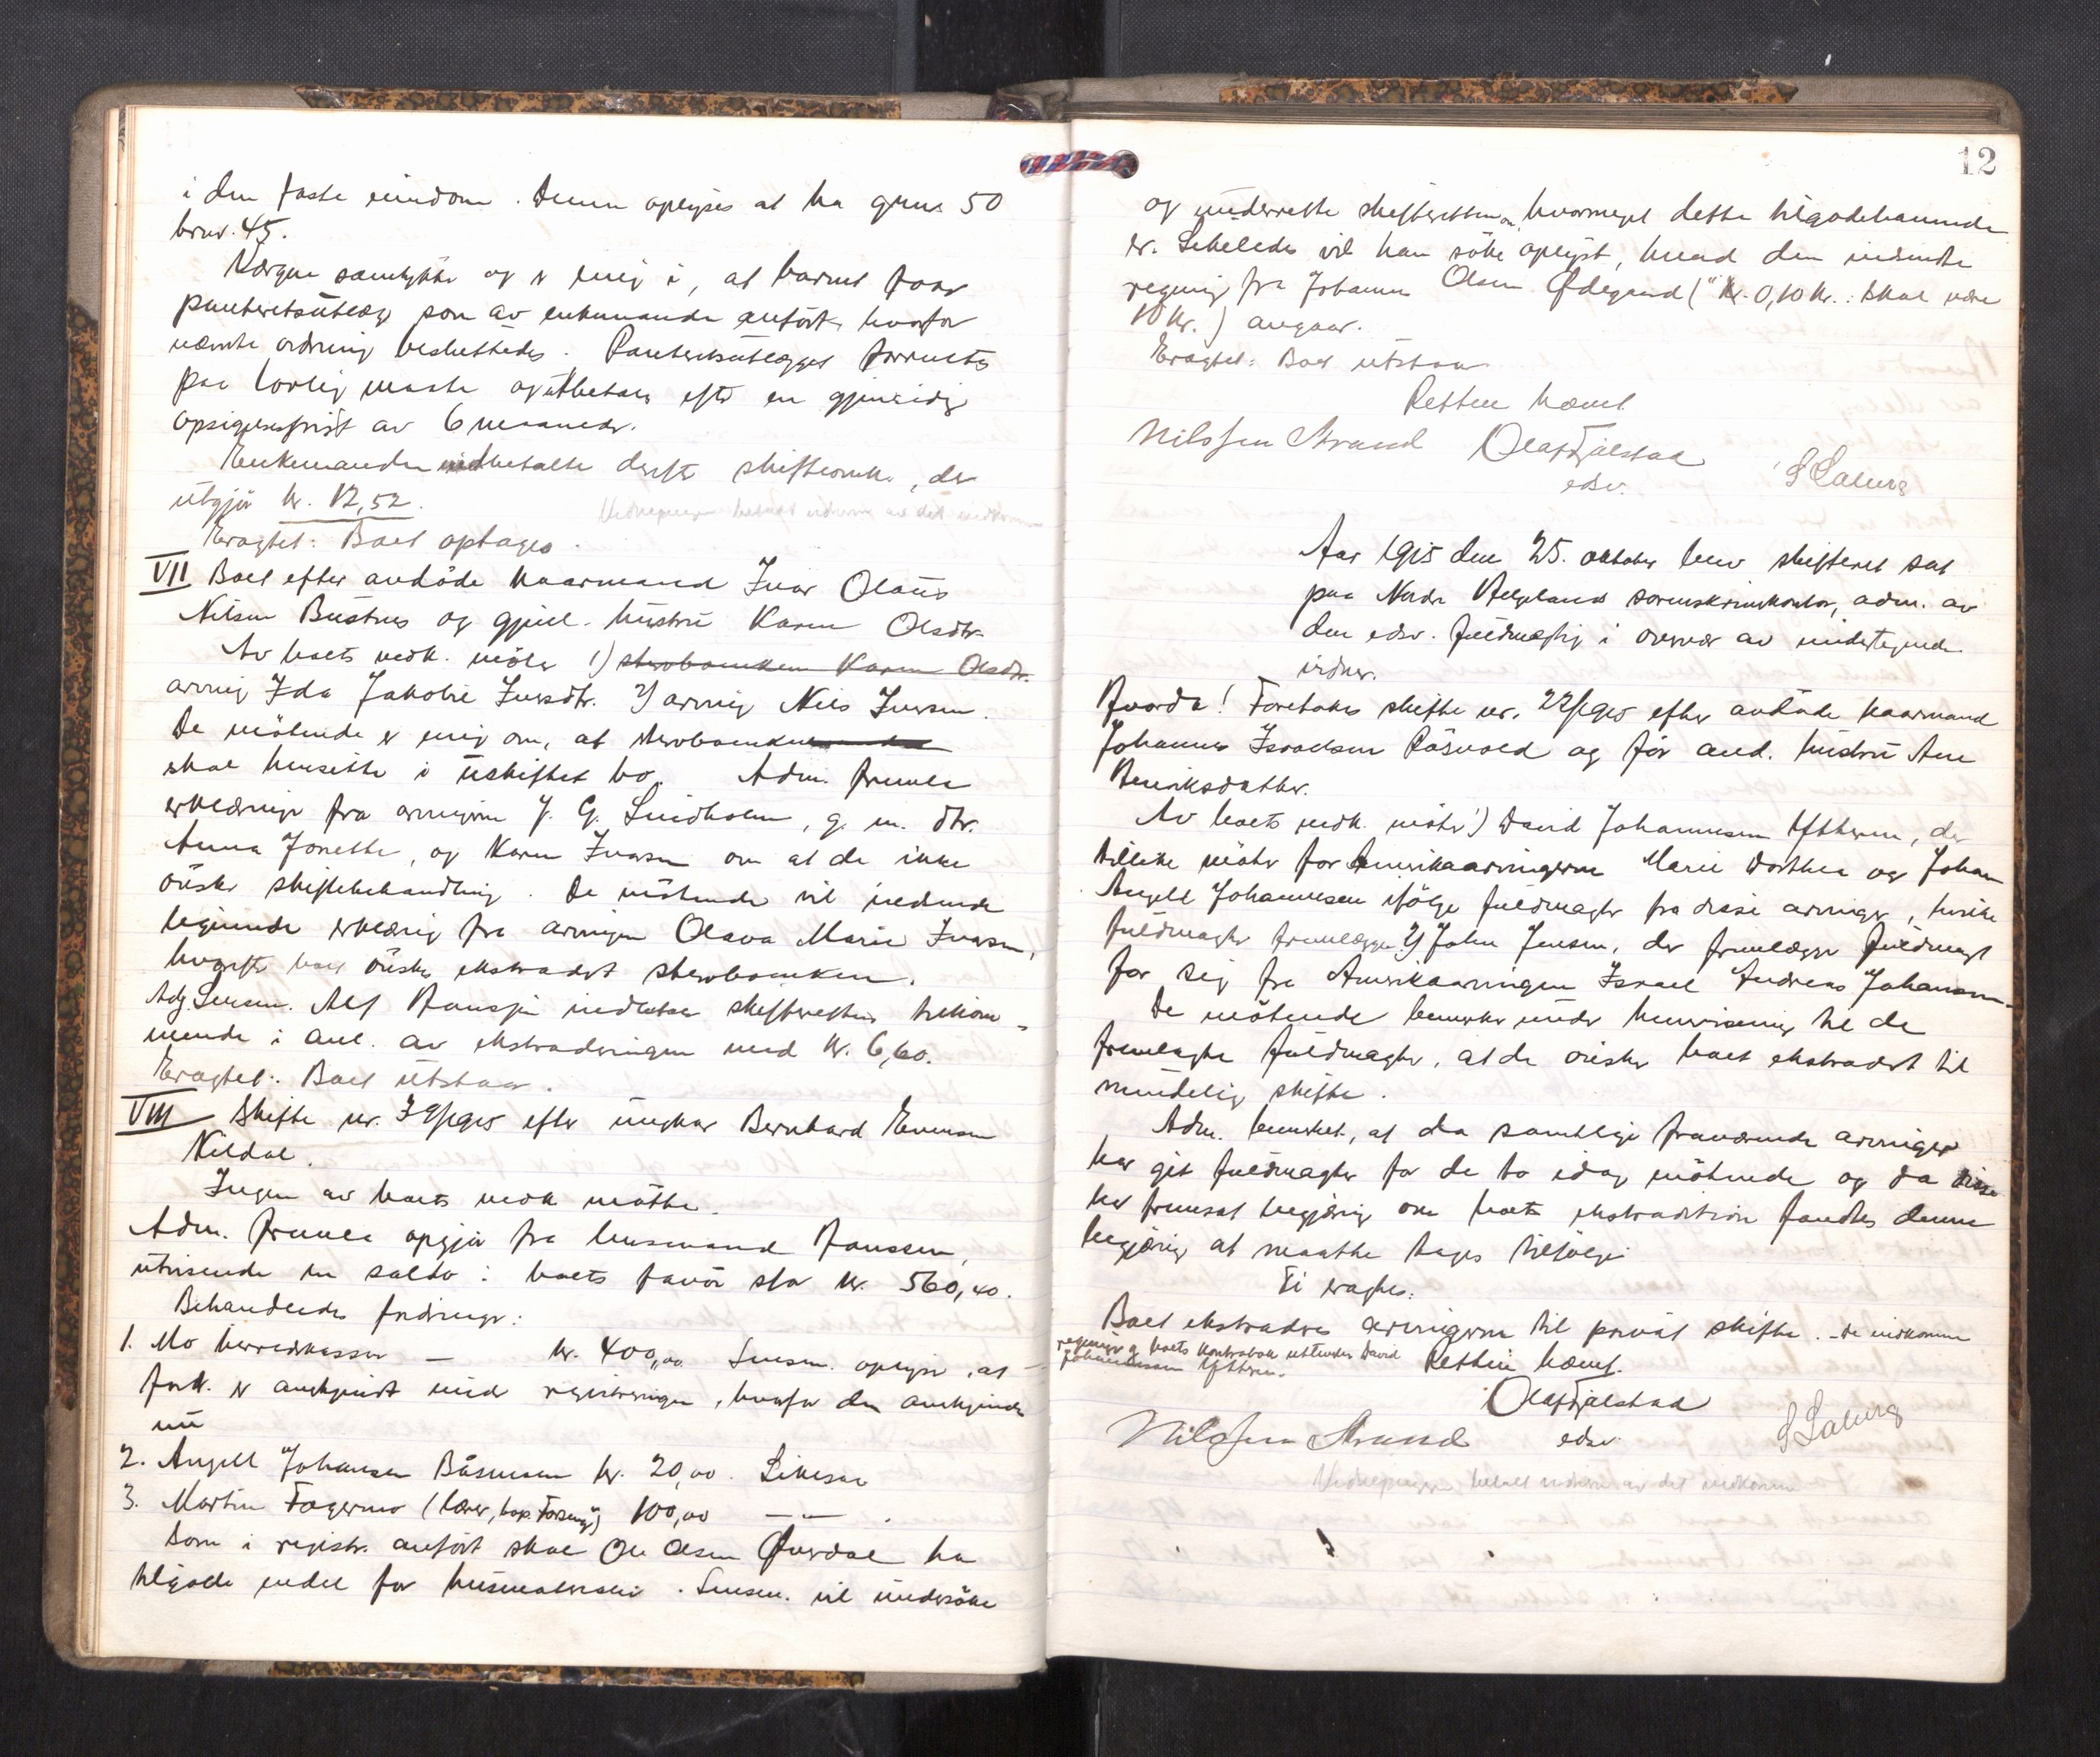 i den faste eiendom. Denne oplyses at ha gnus 50
brnr. 45.
Værgen samtykke og er enig i, at barnet faar
panteretsutlæg som av enkemanden anført, hvorfor
nævnte ordning besluttedes. Panteretsutlægget forrentes
paa lovlig maate og utbetales efter en gjensidig
opsigelsesfrist av 6 maaneder.
Enkemanden indbetalte derefter skifteomk., der
utgjør kr. 12,52.
Eragtet: Boet optages.
VII Boet efter avdøde kaarmand Ivar Olaus
Nilsen Bustnes og gjenl. hustru Karen Olsdtr.
Av boets vedk. møter 1) skrøboenken Karen Olsdtr.
arving Ida Jakobie Iversdtr. 2) arving Nils Iversen.
De møtende er enig om, at skrøboenken
skal hensitte i uskiftet bo. Adm. fremla
erklæringe fra arvingerne J. G. Lindholm, g. m. dtr.
Anna Jonette, og Karen Ivarsen om at de ikke
ønsker skiftebehandling. De møtende vil indsende
lignende erklæring fra arvingen Olava Marie Ivarsen,
hvorefter boet ønskes ekstradert skrøboenken.
Adj. Lensm. Alf Hansjen indbetaler skifterettens tilkom-
mende i anl. av ekstraderingen med kr. 6,60.
Eragtet: Boet utstaar.
VIII Skifte nr. 39/1915 efter ungkar Bernhard Evensen
Nildal.
Ingen av boets vedk møtte.
Adm. fremla opgjør fra lensmand Hanssen,
utvisende en saldo i boets favør stor kr. 560,40.
Behandledes fordringer:
1. Mo herredskasse — kr. 400,00 Lensm. oplyser, at
fordr. er anerkjendt under registreringen, hvorfor den anerkjendes
nu
2. Angell Johansen Båsmoen kr. 20,00. Likesaa
3. Martin Fagermo (lærer, ) 100,00 —"—.
Som i registr. anført skal Ole Olsen Øverdal ha
tilgode endel for husmateriale. Lensm. vil undersøke
12
og underrette skifteretten om hvormeget dette tilgodehavende
er. Likeledes vil han søke oplyst, hvad den indsendte
regning fra Johannes Olsen Ødegaard ("Kr. 0,10 kr.: skal være
10 kr.) angaar.
Eragtet: Boet utstaar
Retten hævet
Nils Jen Strand Olaf Fjalstad S Laberg
edsv.
Aar 1915 den 25. oktober blev skifteret sat
paa Nordre Helgelands sorenskriverkontor, adm. av
den edsv. fuldmægtig i overvær av undertegnede
vidner.
Hvorda! Foretokes skifte nr. 22/1915 efter avdøde kaarmand
Johannes Israelsen Røsvold og før avd. hustru Ane
Henriksdatter.
Av boets vedk. møter 1) David Johannesen Ytteren, der
tillike møter for Amerikaarvingerne Marie Dorthea og Johan
Angell Johannesen ifølge fuldmagter fra disse arvinger, hvilke
fuldmagter fremlægges. 2) John Jensen, der fremlægger fuldmagt
for sig fra Amerikaarvingen Israel Andreas Johannesen-
De møtende bemerker under henvisning til de
fremlagte fuldmagter, at de ønsker boet ekstradert til
mindelig skifte.
Adm. bemerket, at da samtlige fraværende arvinger
har git fuldmagter for de to idag møtende og da disse
har fremsat begjæring om boets ekstradition fandtes denne
begjæring at maatte tages tilfølge
Ti eragtes:
Boet ekstraderes arvingerne til privat skifte. - De indkomne
regninger og boets kontrabok uttendes David
Johannessen Ytteren.
Retten hævet.
Olaf Fjalstad
Nils Jen Strand edsv. S Laberg
Utskrifpenger betalt viderne av det indkomne